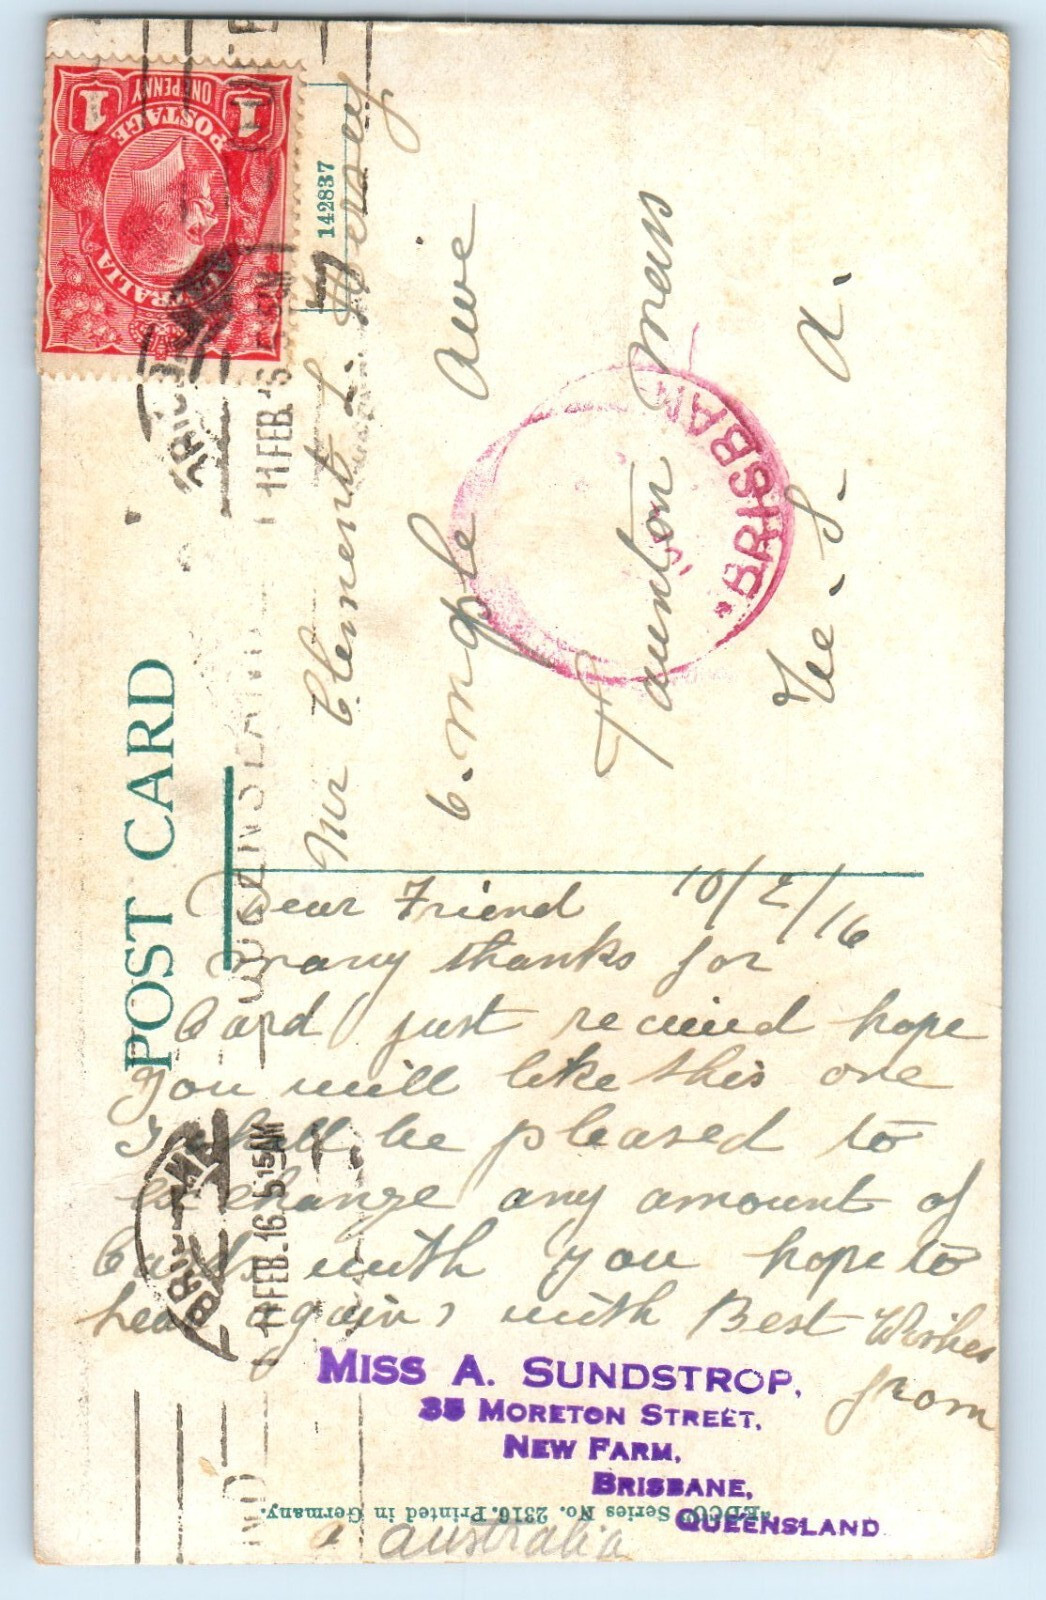 POST CARD
Dear Friend 10/2/16
many thanks for
Card just received hope
you will like this one
I shall be pleased to
exchange any amount of
Cards with you hope to
hear again, with Best Wishes
from
MISS A. SUNDSTROP,
35 MORETON STREET,
NEW FARM,
BRISBANE,
QUEENSLAND
Australia
"EDCO" Series No. 2316. Printed in Germany.
Mr Clement L. Hersey
6. Maple Ave
Taunton Mass
U. S. A.
142837
AUSTRALIA
POSTAGE
ONE PENNY
1 1
11 FEB. 16 5 15 AM
QUEENSLAND
11 FEB. 16 5
BRISBAN